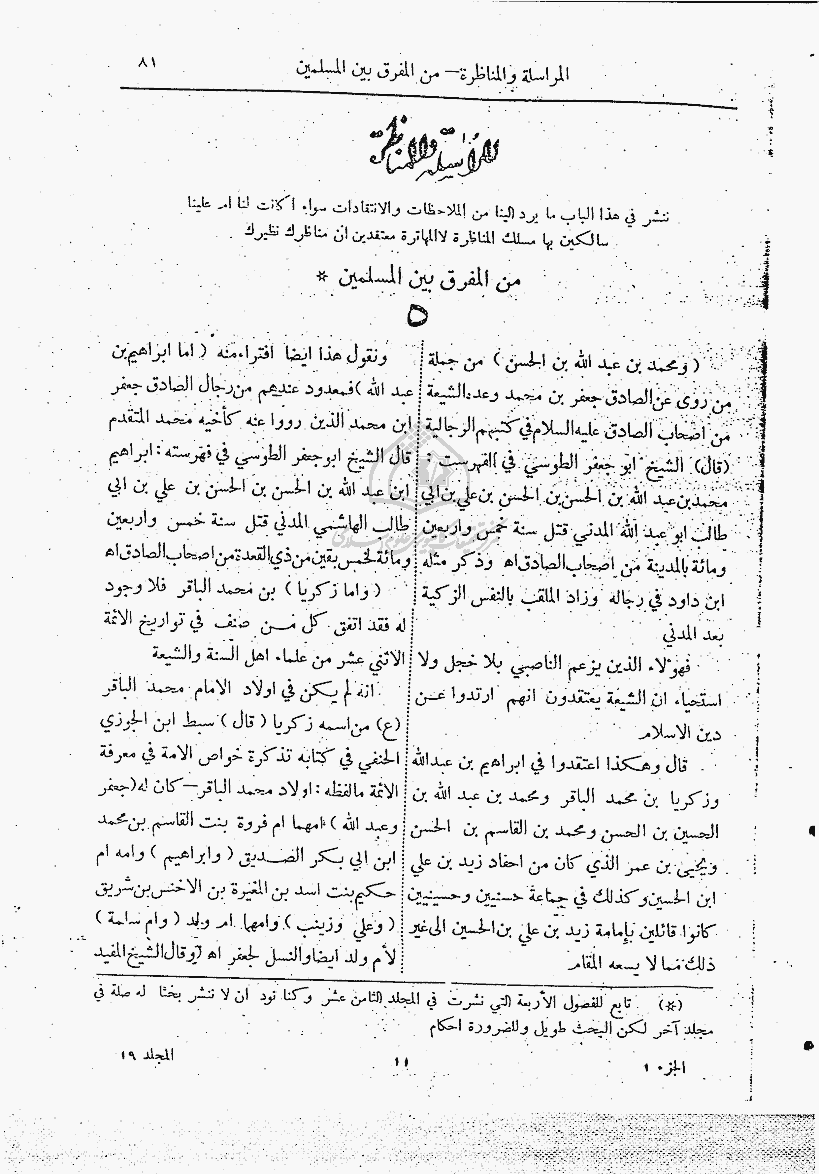 المراسلة والمناظرة — من المفرق بين المسلمين
٨١
المراسلة والمناظرة
ننشر في هذا الباب ما يرد الينا من الملاحظات والانتقادات سواء اكانت لنا ام علينا
سالكين بها مسلك المناظرة لا المهاترة معتقدين ان مناظرك نظيرك
من المفرق بين المسلمين *
٥
( ومحمد بن عبد الله بن الحسن ) من جملة
من روى عن الصادق جعفر بن محمد وعده الشيعة
من اصحاب الصادق عليه السلام في كتبهم الرجالية
(قال) الشيخ ابو جعفر الطوسي في الفهرست :
محمد بن عبد الله بن الحسن بن الحسن بن علي بن ابي
طالب ابو عبد الله المدني قتل سنة خمس واربعين
ومائة بالمدينة من اصحاب الصادق اه وذكر مثله
ابن داود في رجاله وزاد الملقب بالنفس الزكية
بعد المدني
فهولاء الذين يزعم الناصبي بلا خجل ولا
استحياء ان الشيعة يعتقدون انهم ارتدوا عن
دين الاسلام
قال وهكذا اعتقدوا في ابراهيم بن عبدالله
وزكريا بن محمد الباقر ومحمد بن عبد الله بن
الحسين بن الحسن ومحمد بن القاسم بن الحسن
ويحيى بن عمر الذي كان من احفاد زيد بن علي
ابن الحسين وكذلك في جماعة حسنيين وحسينيين
كانوا قائلين بإمامة زيد بن علي بن الحسين الى غير
ذلك مما لا يسعه المقام
ونقول هذا ايضا افتراء منه ( اما ابراهيم بن
عبد الله ) فمعدود عندهم من رجال الصادق جعفر
ابن محمد الذين رووا عنه كأخيه محمد المتقدم
قال الشيخ ابو جعفر الطوسي في فهرسته : ابراهيم
ابن عبد الله بن الحسن بن الحسن بن علي بن ابي
طالب الهاشمي المدني قتل سنة خمس واربعين
ومائة لخمس بقين من ذي القعدة من اصحاب الصادق اه
( واما زكريا ) بن محمد الباقر فلا وجود
له فقد اتفق كل من صنف في تواريخ الائمة
الاثني عشر من علماء اهل السنة والشيعة
انه لم يكن في اولاد الامام محمد الباقر
(ع) من اسمه زكريا ( قال ) سبط ابن الجوزي
الحنفي في كتابه تذكرة خواص الامة في معرفة
الائمة ما لفظه : اولاد محمد الباقر — كان له (جعفر
وعبد الله ) امهما ام فروة بنت القاسم بن محمد
ابن ابي بكر الصديق ( وابراهيم ) وامه ام
حكيم بنت اسد بن المغيرة بن الاخنس بن شريق
( وعلي وزينب ) وامهما ام ولد ( وام سلمة )
لأم ولد ايضا والنسل لجعفر اه (وقال الشيخ المفيد
(*) تابع للفصول الأربعة التي نشرت في المجلد الثامن عشر وكنا نود ان لا ننشر بحثا له صلة في
مجلد آخر لكن البحث طويل وللضرورة احكام
الجزء ١
١١
المجلد ١٩